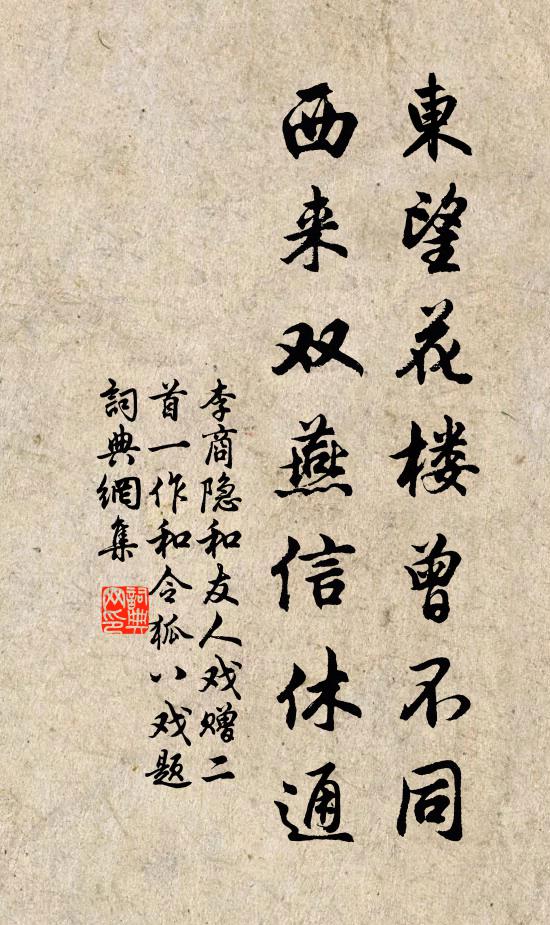 東望花楼曾不同
西来双燕信休通
李商隐和友人戏赠二
首一作和令狐八戏题
詞典網集
詞典
网印